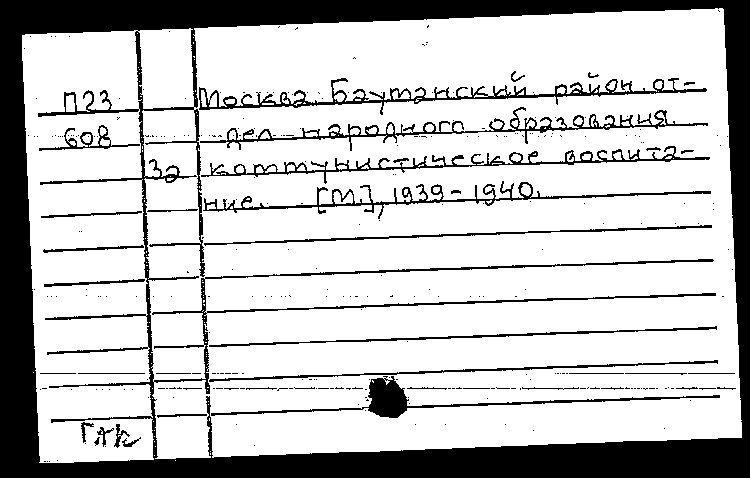 П23 Москва. Баутанский район. от-
608 дел народного образования.
За коммунистическое воспита-
ние. [М.], 1939-1940.
ГАК